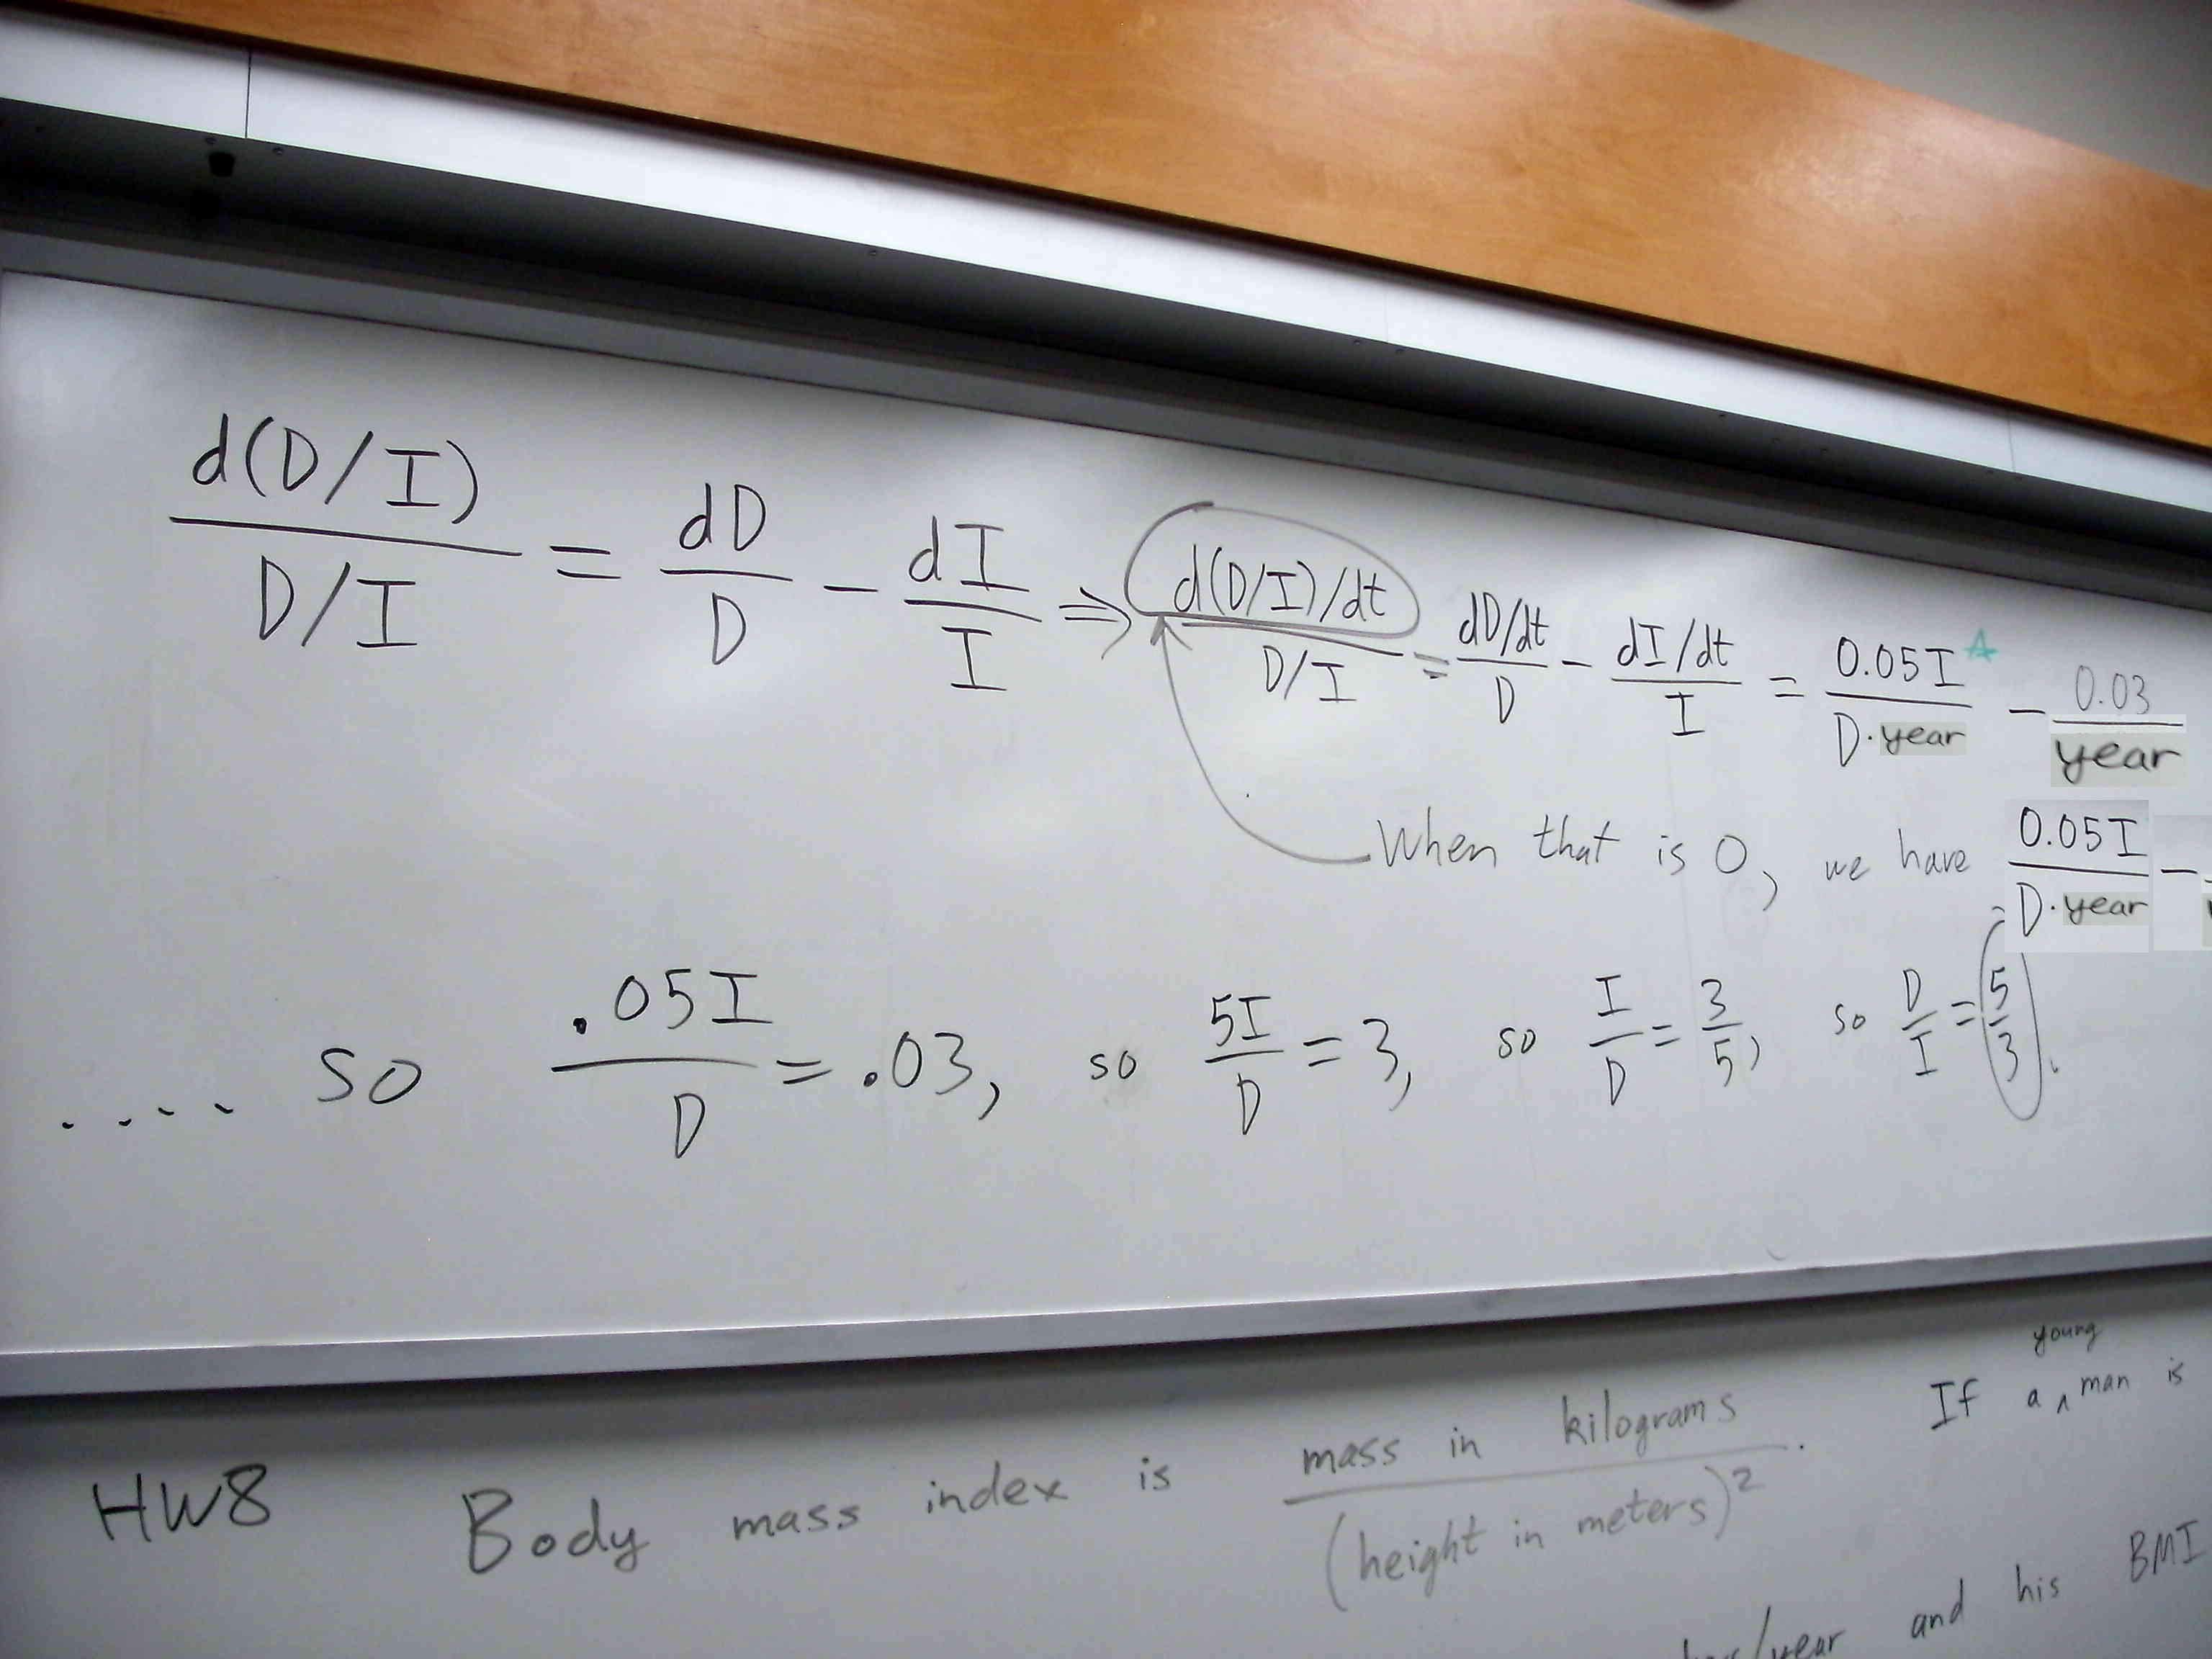 d(D/I)/(D/I) = dD/D - dI/I ⇒ (d(D/I)/dt)/(D/I) = (dD/dt)/D - (dI/dt)/I = 0.05I/(D·year) - 0.03/year
When that is 0, we have 0.05I/(D·year) -
.... so .05I/D = .03, so 5I/D = 3, so I/D = 3/5, so D/I = 5/3.
HW8 Body mass index is mass in kilograms/(height in meters)². If a young man is
/year and his BMI